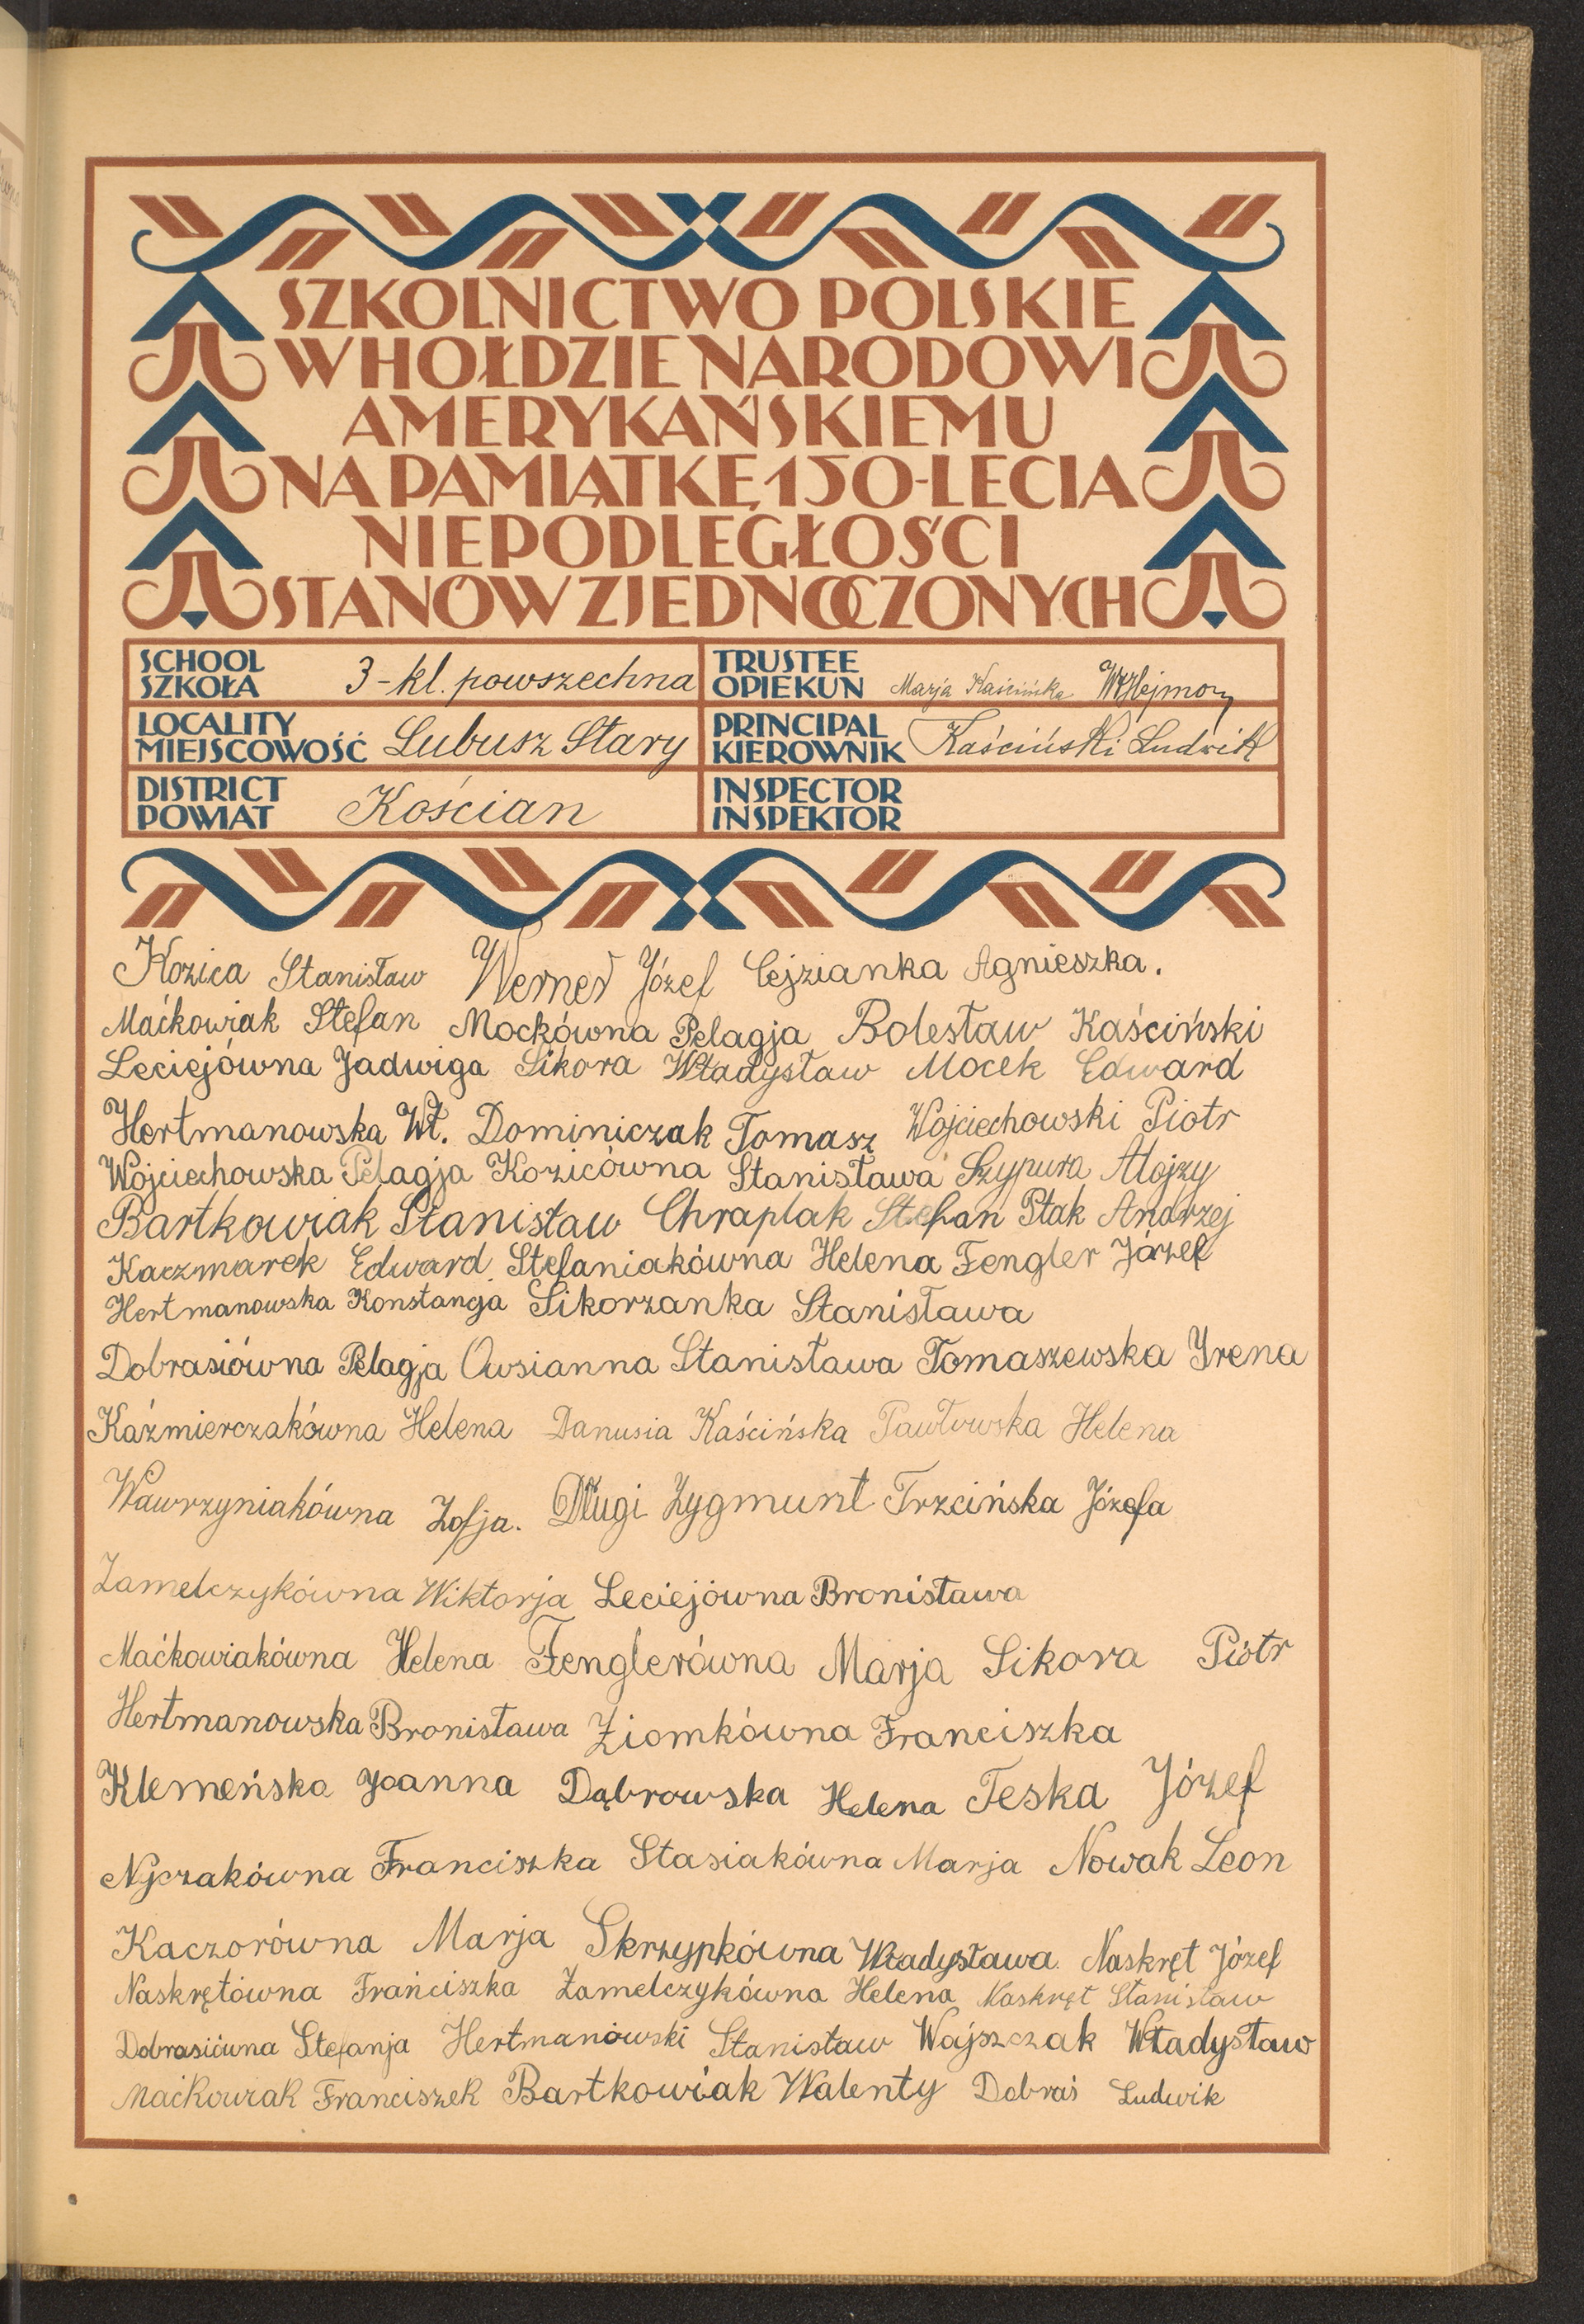 SZKOLNICTWO POLSKIE
W HOŁDZIE NARODOWI
AMERYKAŃSKIEMU
NA PAMIĄTKĘ 150-LECIA
NIEPODLEGŁOŚCI
STANÓW ZJEDNOCZONYCH
SCHOOL
SZKOŁA 3-kl. powszechna
TRUSTEE
OPIEKUN Marja Kaścińska
LOCALITY
MIEJSCOWOŚĆ Lubusz Stary
PRINCIPAL
KIEROWNIK Kaściński Ludwik
DISTRICT
POWIAT Kościan
INSPECTOR
INSPEKTOR
Kozica Stanisław Werner Józef Cejzianka Agnieszka.
Maćkowiak Stefan Mockówna Pelagja Bolesław Kaściński
Leciejówna Jadwiga Sikora Władysław Mocek Edward
Hertmanowska Wł. Dominiczak Tomasz Wojciechowski Piotr
Wojciechowska Pelagja Kozicówna Stanisława Szypura Alojzy
Bartkowiak Stanisław Chraplak Stefan Ptak Andrzej
Kaczmarek Edward Stefaniakówna Helena Fengler Józef
Hertmanowska Konstancja Sikorzanka Stanisława
Dobrasiówna Pelagja Owsianna Stanisława Tomaszewska Yrena
Kaźmierczakówna Helena Danusia Kaścińska Pawłowska Helena
Wawrzyniakówna Zofja. Długi Zygmunt Trzcińska Józefa
Zamelczykówna Wiktorja Leciejówna Bronisława
Maćkowiakówna Helena Fenglerówna Marja Sikora Piotr
Hertmanowska Bronisława Ziomkówna Franciszka
Klemeńska Joanna Dąbrowska Helena Teska Józef
Nyczakówna Franciszka Stasiakówna Marja Nowak Leon
Kaczorówna Marja Skrzypkówna Władysława. Naskręt Józef
Naskrętówna Franciszka Zamelczykówna Helena Naskręt Stanisław
Dobrasiówna Stefanja Hertmanowski Stanisław Wajszczak Władysław
Maćkowiak Franciszek Bartkowiak Walenty Dobraś Ludwik